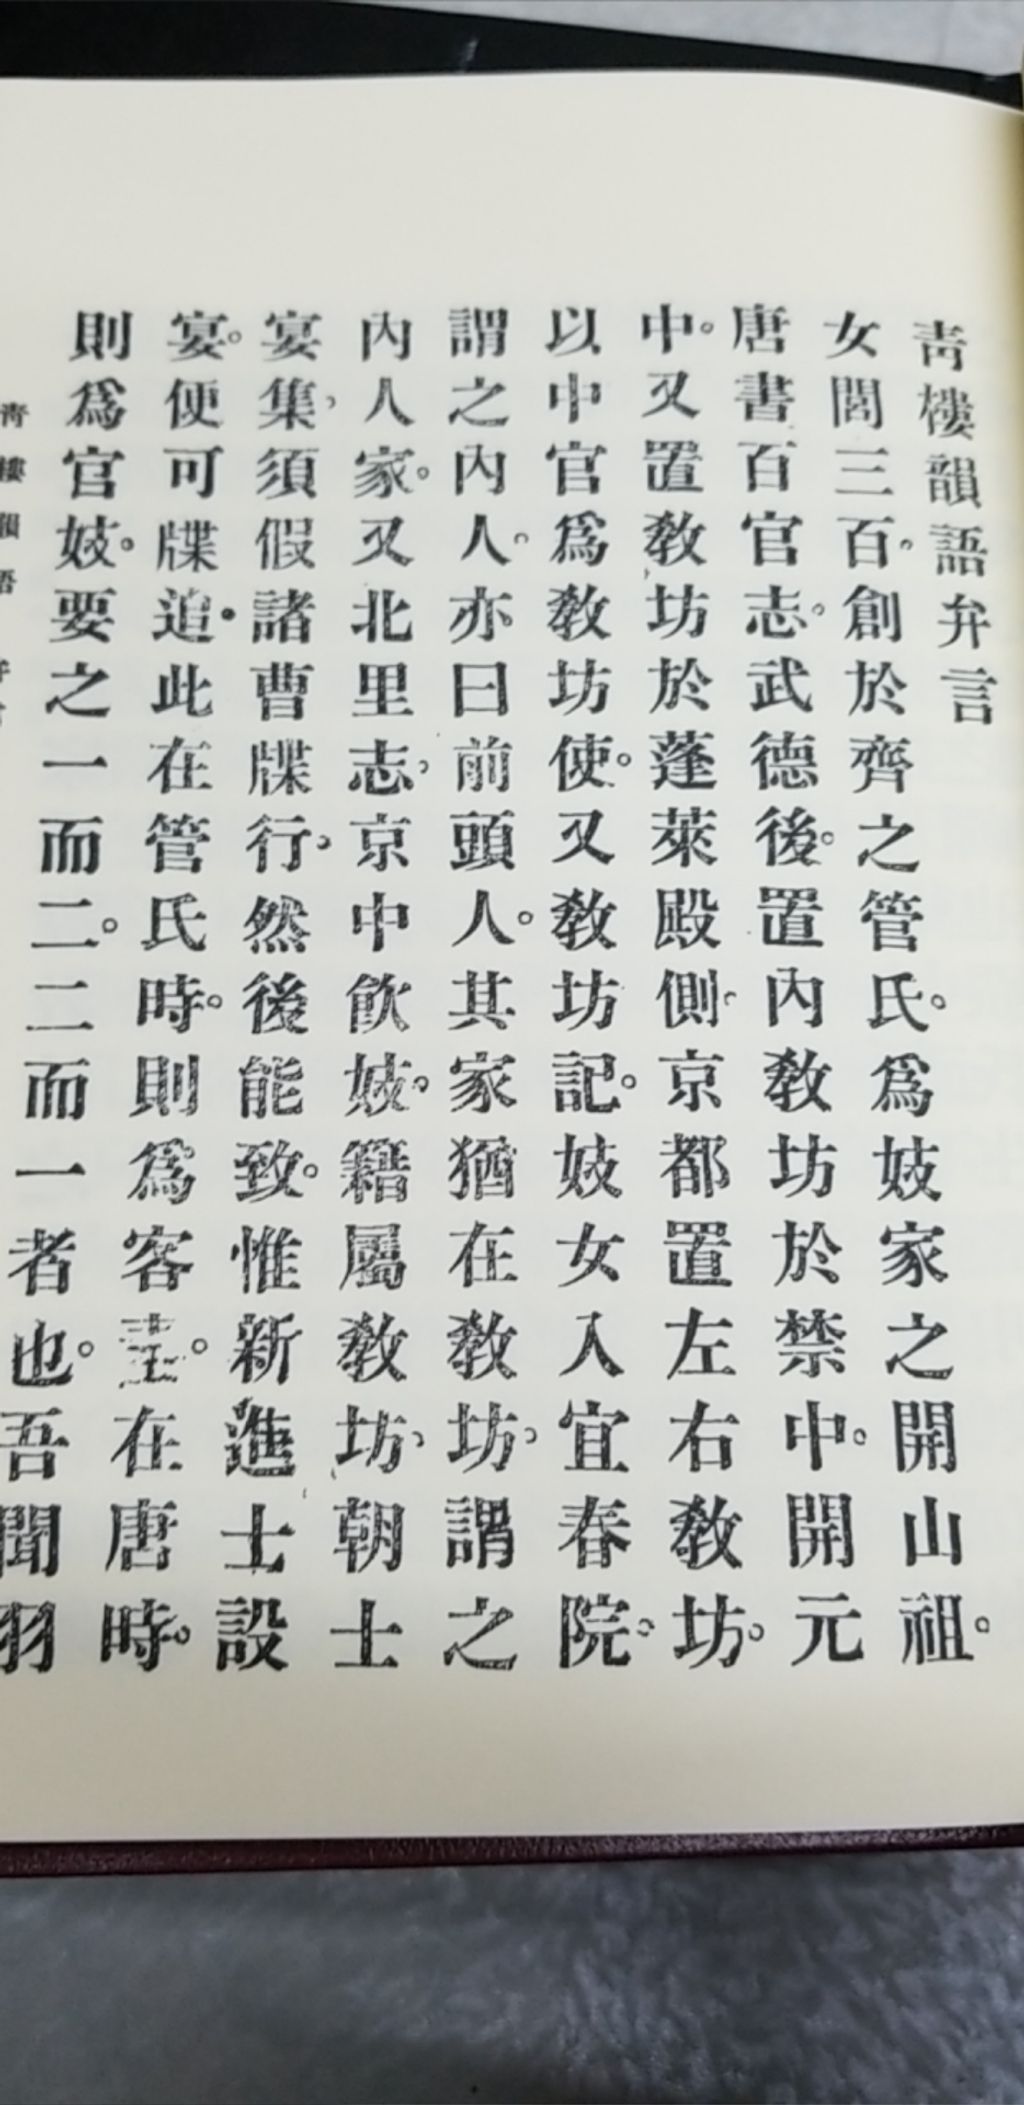 青樓韻語弁言
女閭三百。創於齊之管氏。爲妓家之開山祖。
唐書百官志。武德後。置內教坊於禁中。開元
中。又置教坊於蓬萊殿側。京都置左右教坊。
以中官爲教坊使。又教坊記。妓女入宜春院。
謂之內人。亦曰前頭人。其家猶在教坊、謂之
內人家。又北里志、京中飮妓。籍屬教坊、朝士
宴集、須假諸曹牒行、然後能致。惟新進士設
宴。便可牒追。此在管氏時。則爲客。在唐時。
則爲官妓。要之一而二。二而一者也。吾聞羽
靑樓韻語